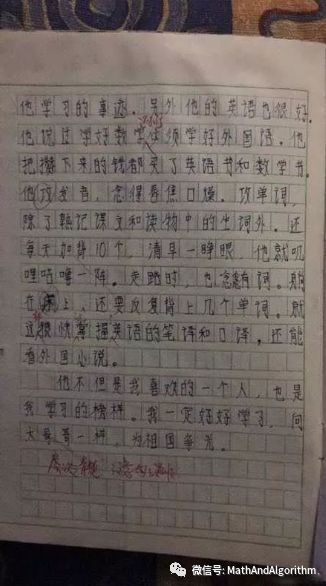 他学习的事迹。另外他的英语也很好。
他说过学好数学必须学好外国语。他
把攒下来的钱都买了英语书和数学书。
他攻发音，念得唇焦口燥。攻单词，
除了熟记课文和读物中的生词外，还
每天加背10个，清早一睁眼，他就叽
哩咕噜一阵。走路时，也念念有词。躺
在床上，还要反复背上几个单词。就
这样很快掌握英语的笔译和口译，还能
看外国小说。
他不但是我喜欢的一个人，也是
我学习的榜样。我一定好好学习，向
大哥哥一样，为祖国争光。
微信号: MathAndAlgorithm